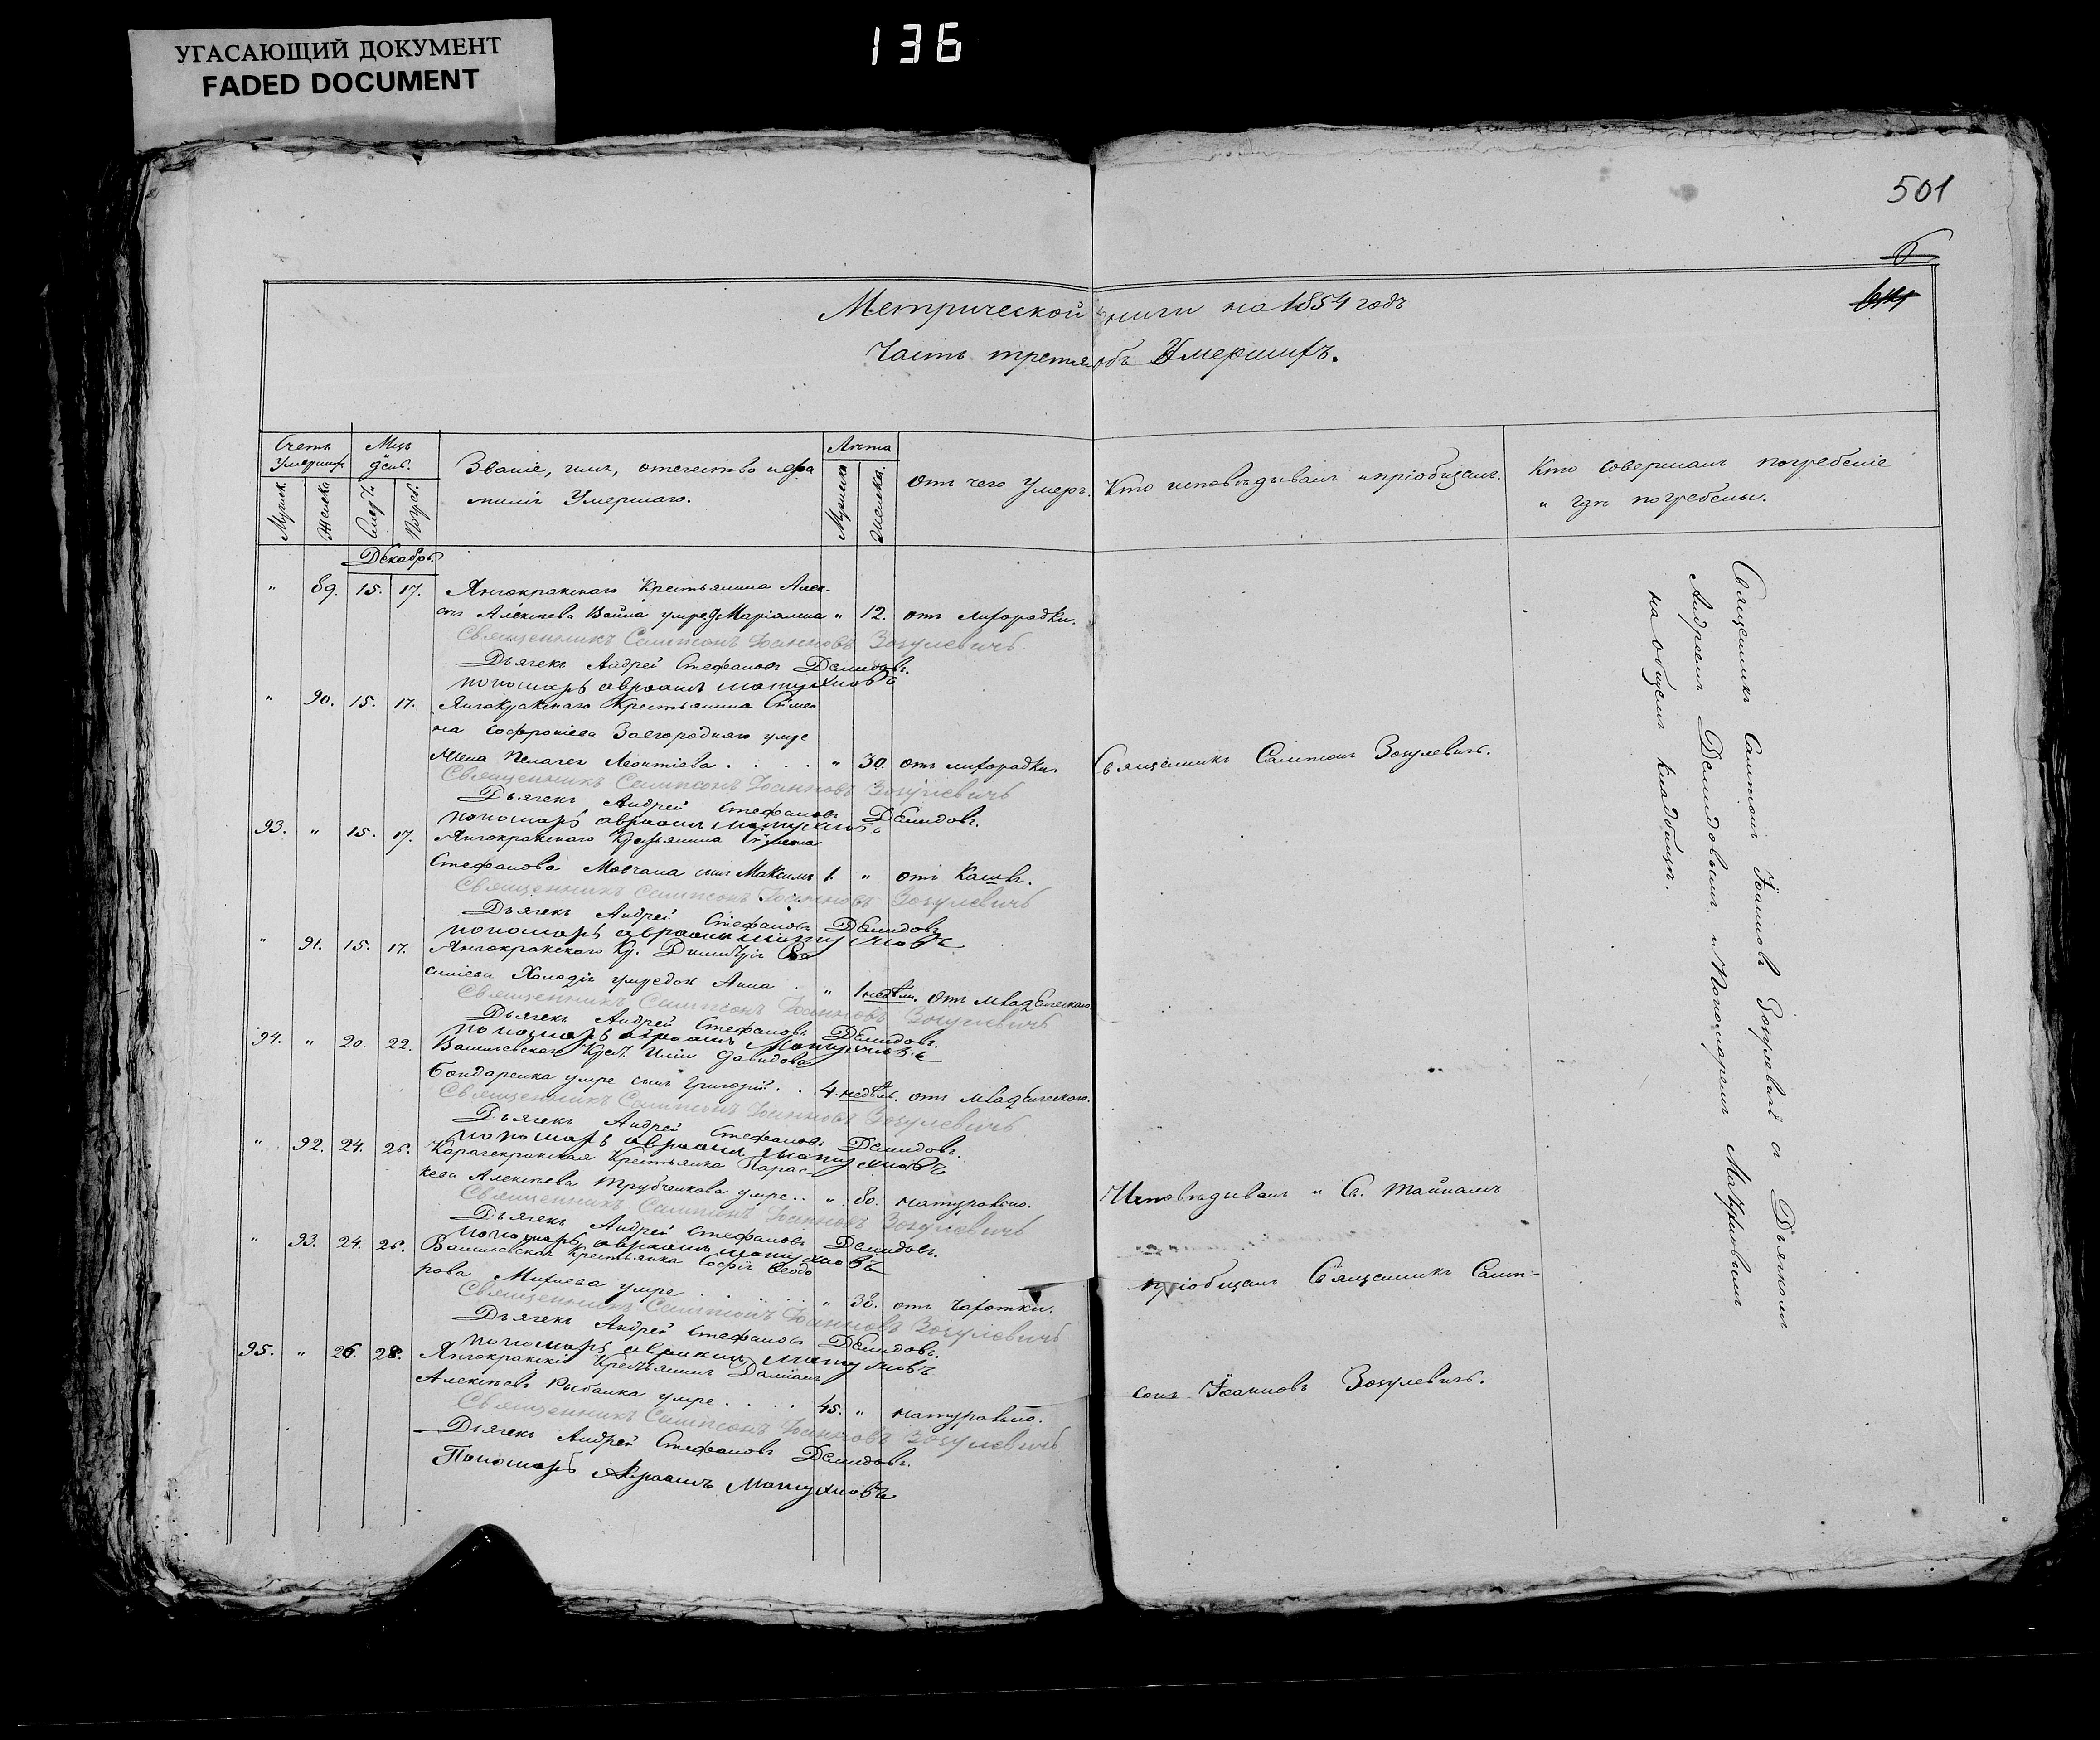 УГАСАЮЩИЙ ДОКУМЕНТ
FADED DOCUMENT
136
501
Метрической книги на 1854 годъ
Часть третья объ Умершихъ.
Счетъ Умерших
Мцъ день.
Звание, имя, отечество и фа
милия Умершаго.
Лѣта
Отъ чего Умеръ.
Кто исповѣдывалъ и пріобщалъ.
Кто совершалъ погребеніе
и гдѣ погребены.
Мужск
Женска
Смерт.
Погреб.
Мужска
Женска.
Декабрь.
" 89. 15. 17. Янчокракскаго Крестьянина Алек-
сѣя Алексѣева Война умре д. Маріанна " 12. отъ лихорадки.
Священникъ Сампсонъ Іоанновъ Зозулевичъ
Дьячекъ Андрей Стефановъ Демидовъ.
пономарь авраамъ
" 90. 15. 17. Янчокракскаго Крестьянина Симео
на Софроніева Завгородняго умре
Жена Пелагея Леонтіева . . . . " 30. отъ лихорадки. Священникъ Сампсонъ Зозулевичъ.
Священникъ Сампсонъ Іоанновъ Зозулевичъ
Дьячекъ Андрей Стефановъ Демидовъ.
пономарь авраамъ
93. " 15. 17. Янчокракскаго Крестьянина
Стефанова Мовчана сынъ Максимъ 1. " отъ Кашля.
Священникъ Сампсонъ Іоанновъ Зозулевичъ
Дьячекъ Андрей Стефановъ Демидовъ
пономарь авраамъ
" 91. 15. 17. Янчокракского Кр. Димитрія Ва
силіева Холодія умре дочь Анна . " 1 недѣли. Отъ младенческаго
Священникъ Сампсонъ Іоанновъ Зозулевичъ
Дьячекъ Андрей Стефановъ Демидовъ.
пономарь авраамъ
94. " 20. 22. Васильевскаго Крест. Иліи Давидова
Бондаренка умре сынъ Григорій . . 4. недѣль. отъ младенческого.
Священникъ Сампсонъ Іоанновъ Зозулевичъ
Дьячекъ Андрей Стефановъ Демидовъ.
пономарь авраамъ
" 92. 24. 26. Карачекракская Крестьянка Парас-
кева Алексѣева Трубченкова умре . . " 80. натурально. Исповѣдывалъ и Св. Тайнамъ
Священникъ Сампсонъ Іоанновъ Зозулевичъ
Дьячекъ Андрей Стефановъ Демидовъ.
пономарь авраамъ
" 93. 24. 26. Васильевская Крестьянка Софія Ѳеодо
рова Михнева умре . . . . " 38. отъ Чахотки. пріобщалъ Священникъ Самп-
Священникъ Сампсонъ Іоанновъ Зозулевичъ
Дьячекъ Андрей Стефановъ Демидовъ.
пономарь авраамъ
95. " 26. 28. Янчокракскій Крестьянинъ Даміанъ
Алексѣевъ Рыбалка умре . . . . 45. " натурально. сонъ Іоанновъ Зозулевичъ.
Священникъ Сампсонъ Іоанновъ Зозулевичъ
Дьячекъ Андрей Стефановъ Демидовъ.
Пономарь Авраамъ
Священникъ Сампсонъ Іоанновъ Зозулевичъ съ Дьячкомъ
Андреемъ Демидовымъ и Пономаремъ
на общемъ кладбищѣ.